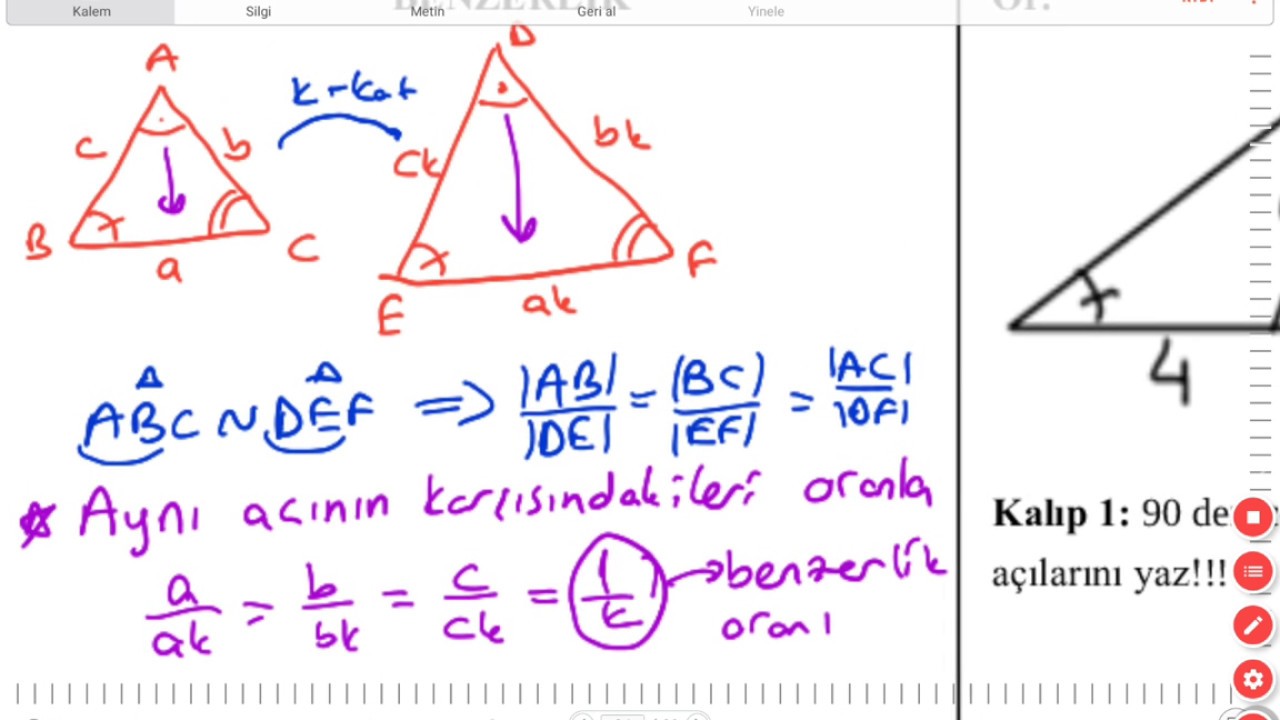 Kalem Silgi Metin Geri al Yinele
BENZERLİK
A
D
k-kat
c
b
ck
bk
B
x
C
a
E
x
F
ak
ABC ~ DEF => |AB|/|DE| = |BC|/|EF| = |AC|/|DF|
Aynı açının karşısındakileri oranla
a/ak = b/bk = c/ck = 1/k → benzerlik
oranı
x
4
Kalıp 1: 90 de
açılarını yaz!!!